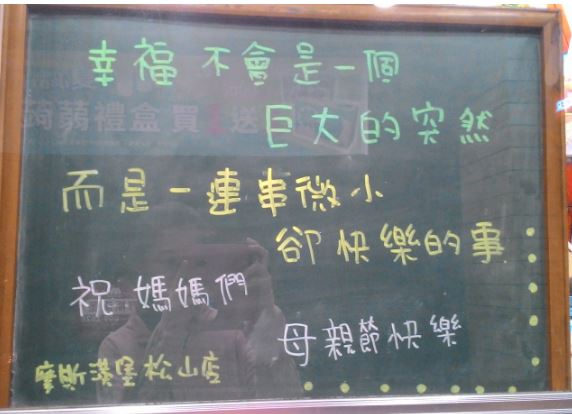 幸福 不會是一個
巨大的突然
而是一連串微小
卻快樂的事
祝 媽媽們
母親節快樂
摩斯漢堡松山店
蒟蒻禮盒 買1送